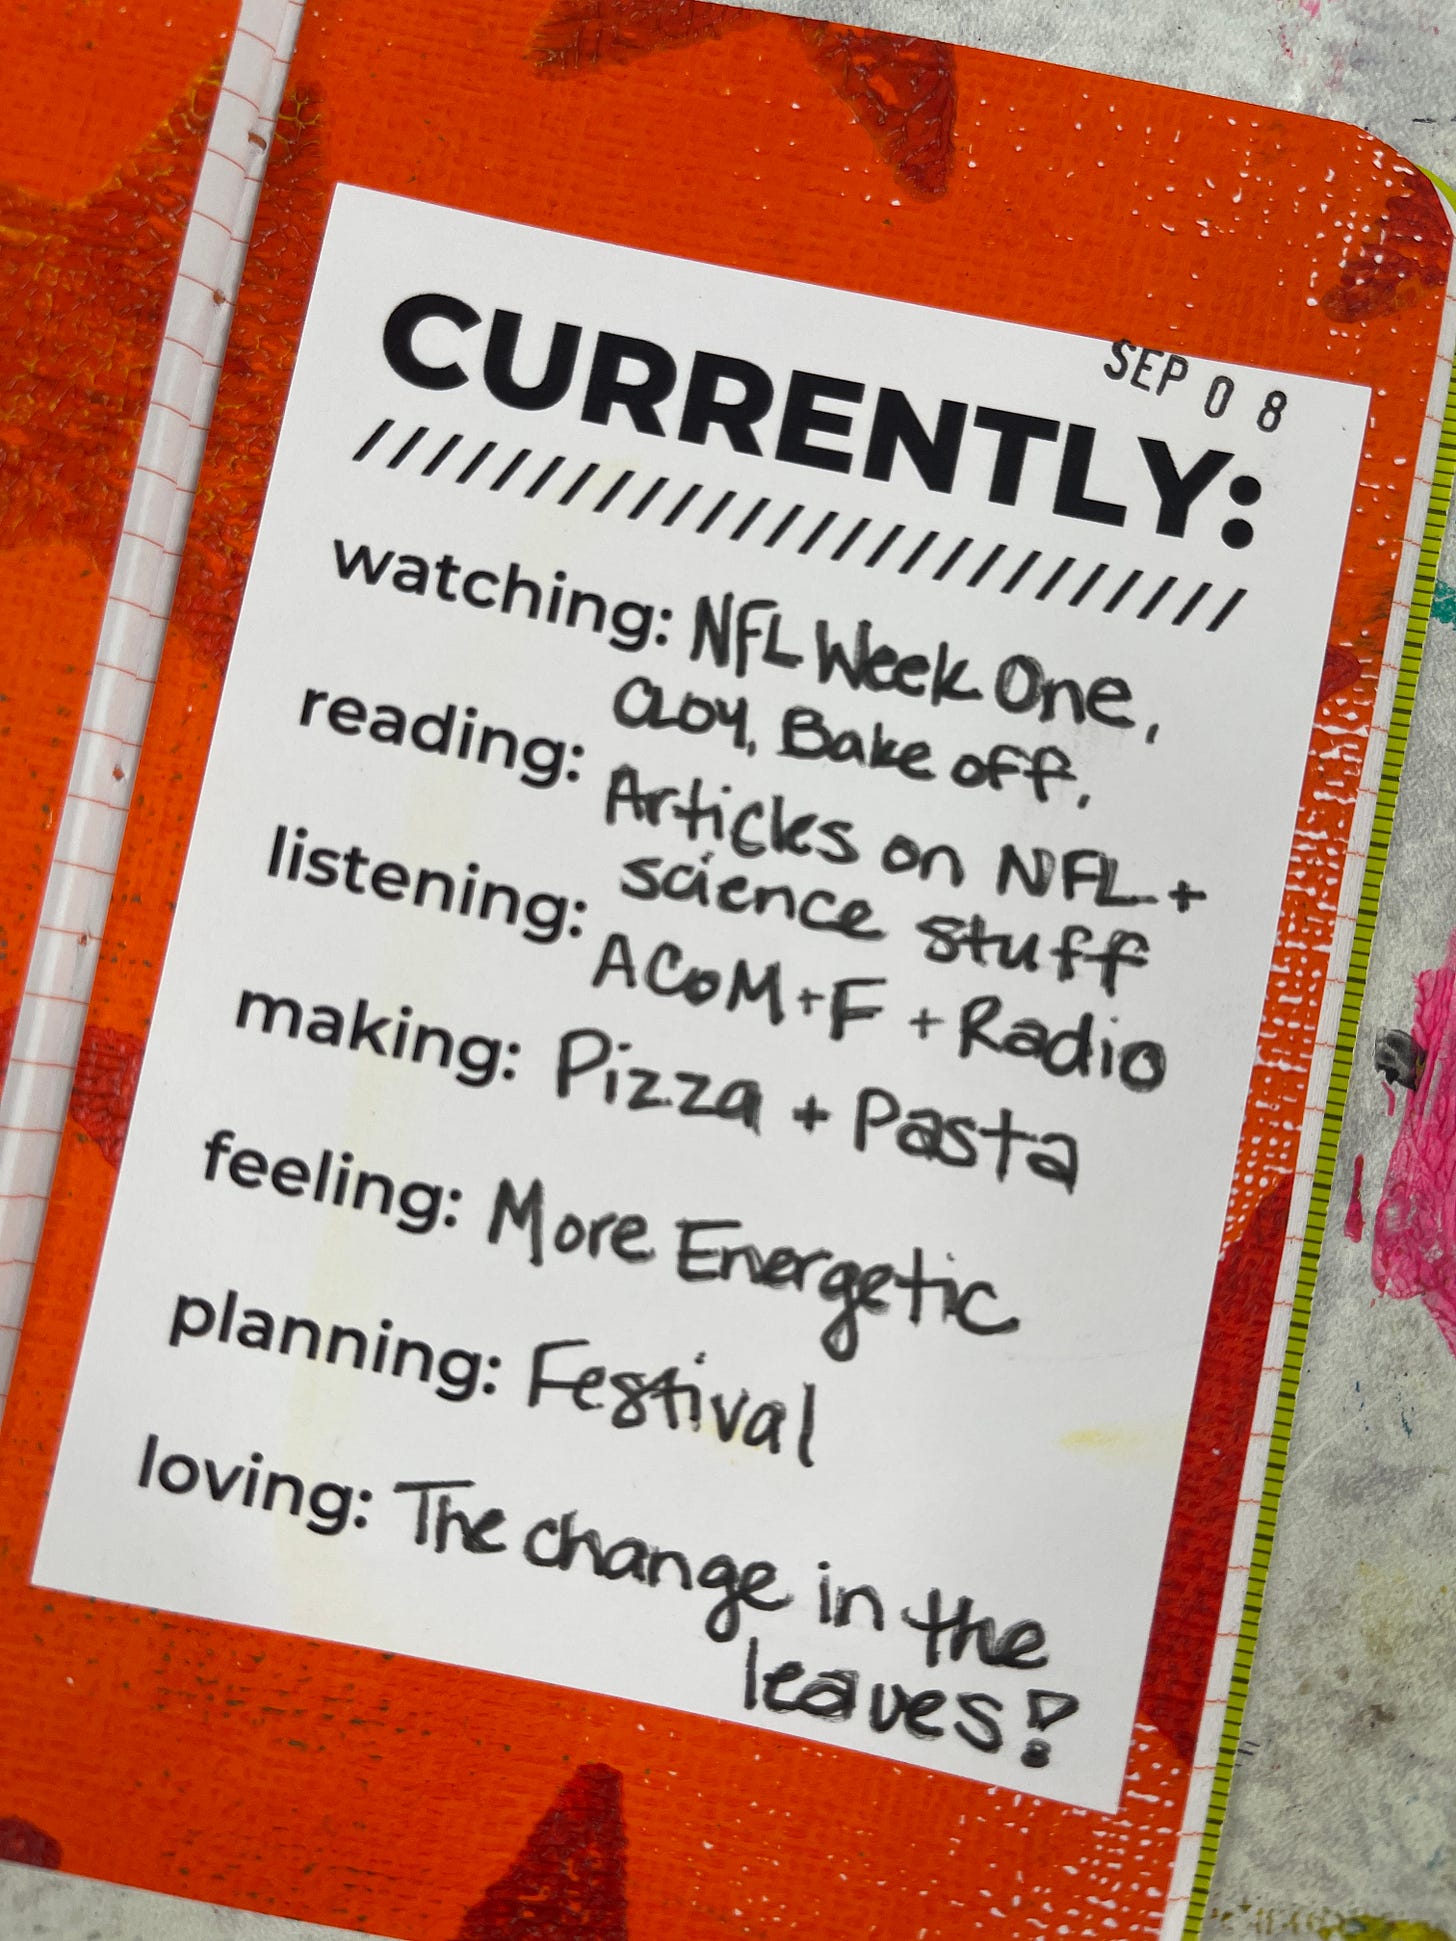 SEP 08
CURRENTLY:
////////////////////////////
watching: NFL Week One,
CLOY, Bake off,
reading: Articles on NFL +
science stuff
listening: ACoM+F + Radio
making: Pizza + Pasta
feeling: More Energetic
planning: Festival
loving: The change in the
leaves!